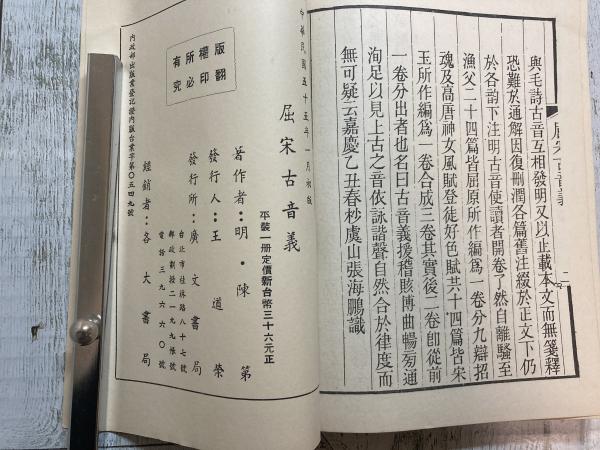 屈宋古音義
二
與毛詩古音互相發明又以止載本文而無箋釋
恐難於通解因復刪潤各篇舊注綴於正文下仍
於各韵下注明古音使讀者開卷了然自離騷至
漁父二十四篇皆屈原所作編爲一卷分九辯招
魂及高唐神女風賦登徒好色賦共十四篇皆宋
玉所作編爲一卷合成三卷其實後二卷卽從前
一卷分出者也名曰古音義援稽賅博曲暢旁通
洵足以見上古之音依詠諧聲自然合於律度而
無可疑云嘉慶乙丑春杪虞山張海鵬識
中華民國五十五年一月初版
屈宋古音義
平裝一册定價新台幣三十六元正
著作者：明・陳第
發行人：王道榮
發行所：廣文書局
台北市桂林路八十七號
郵政劃撥二一九九帳號
電話三九六六〇號
經銷者：各大書局
版權所有
翻印必究
內政部出版業登記證內版台業字第〇五四九號